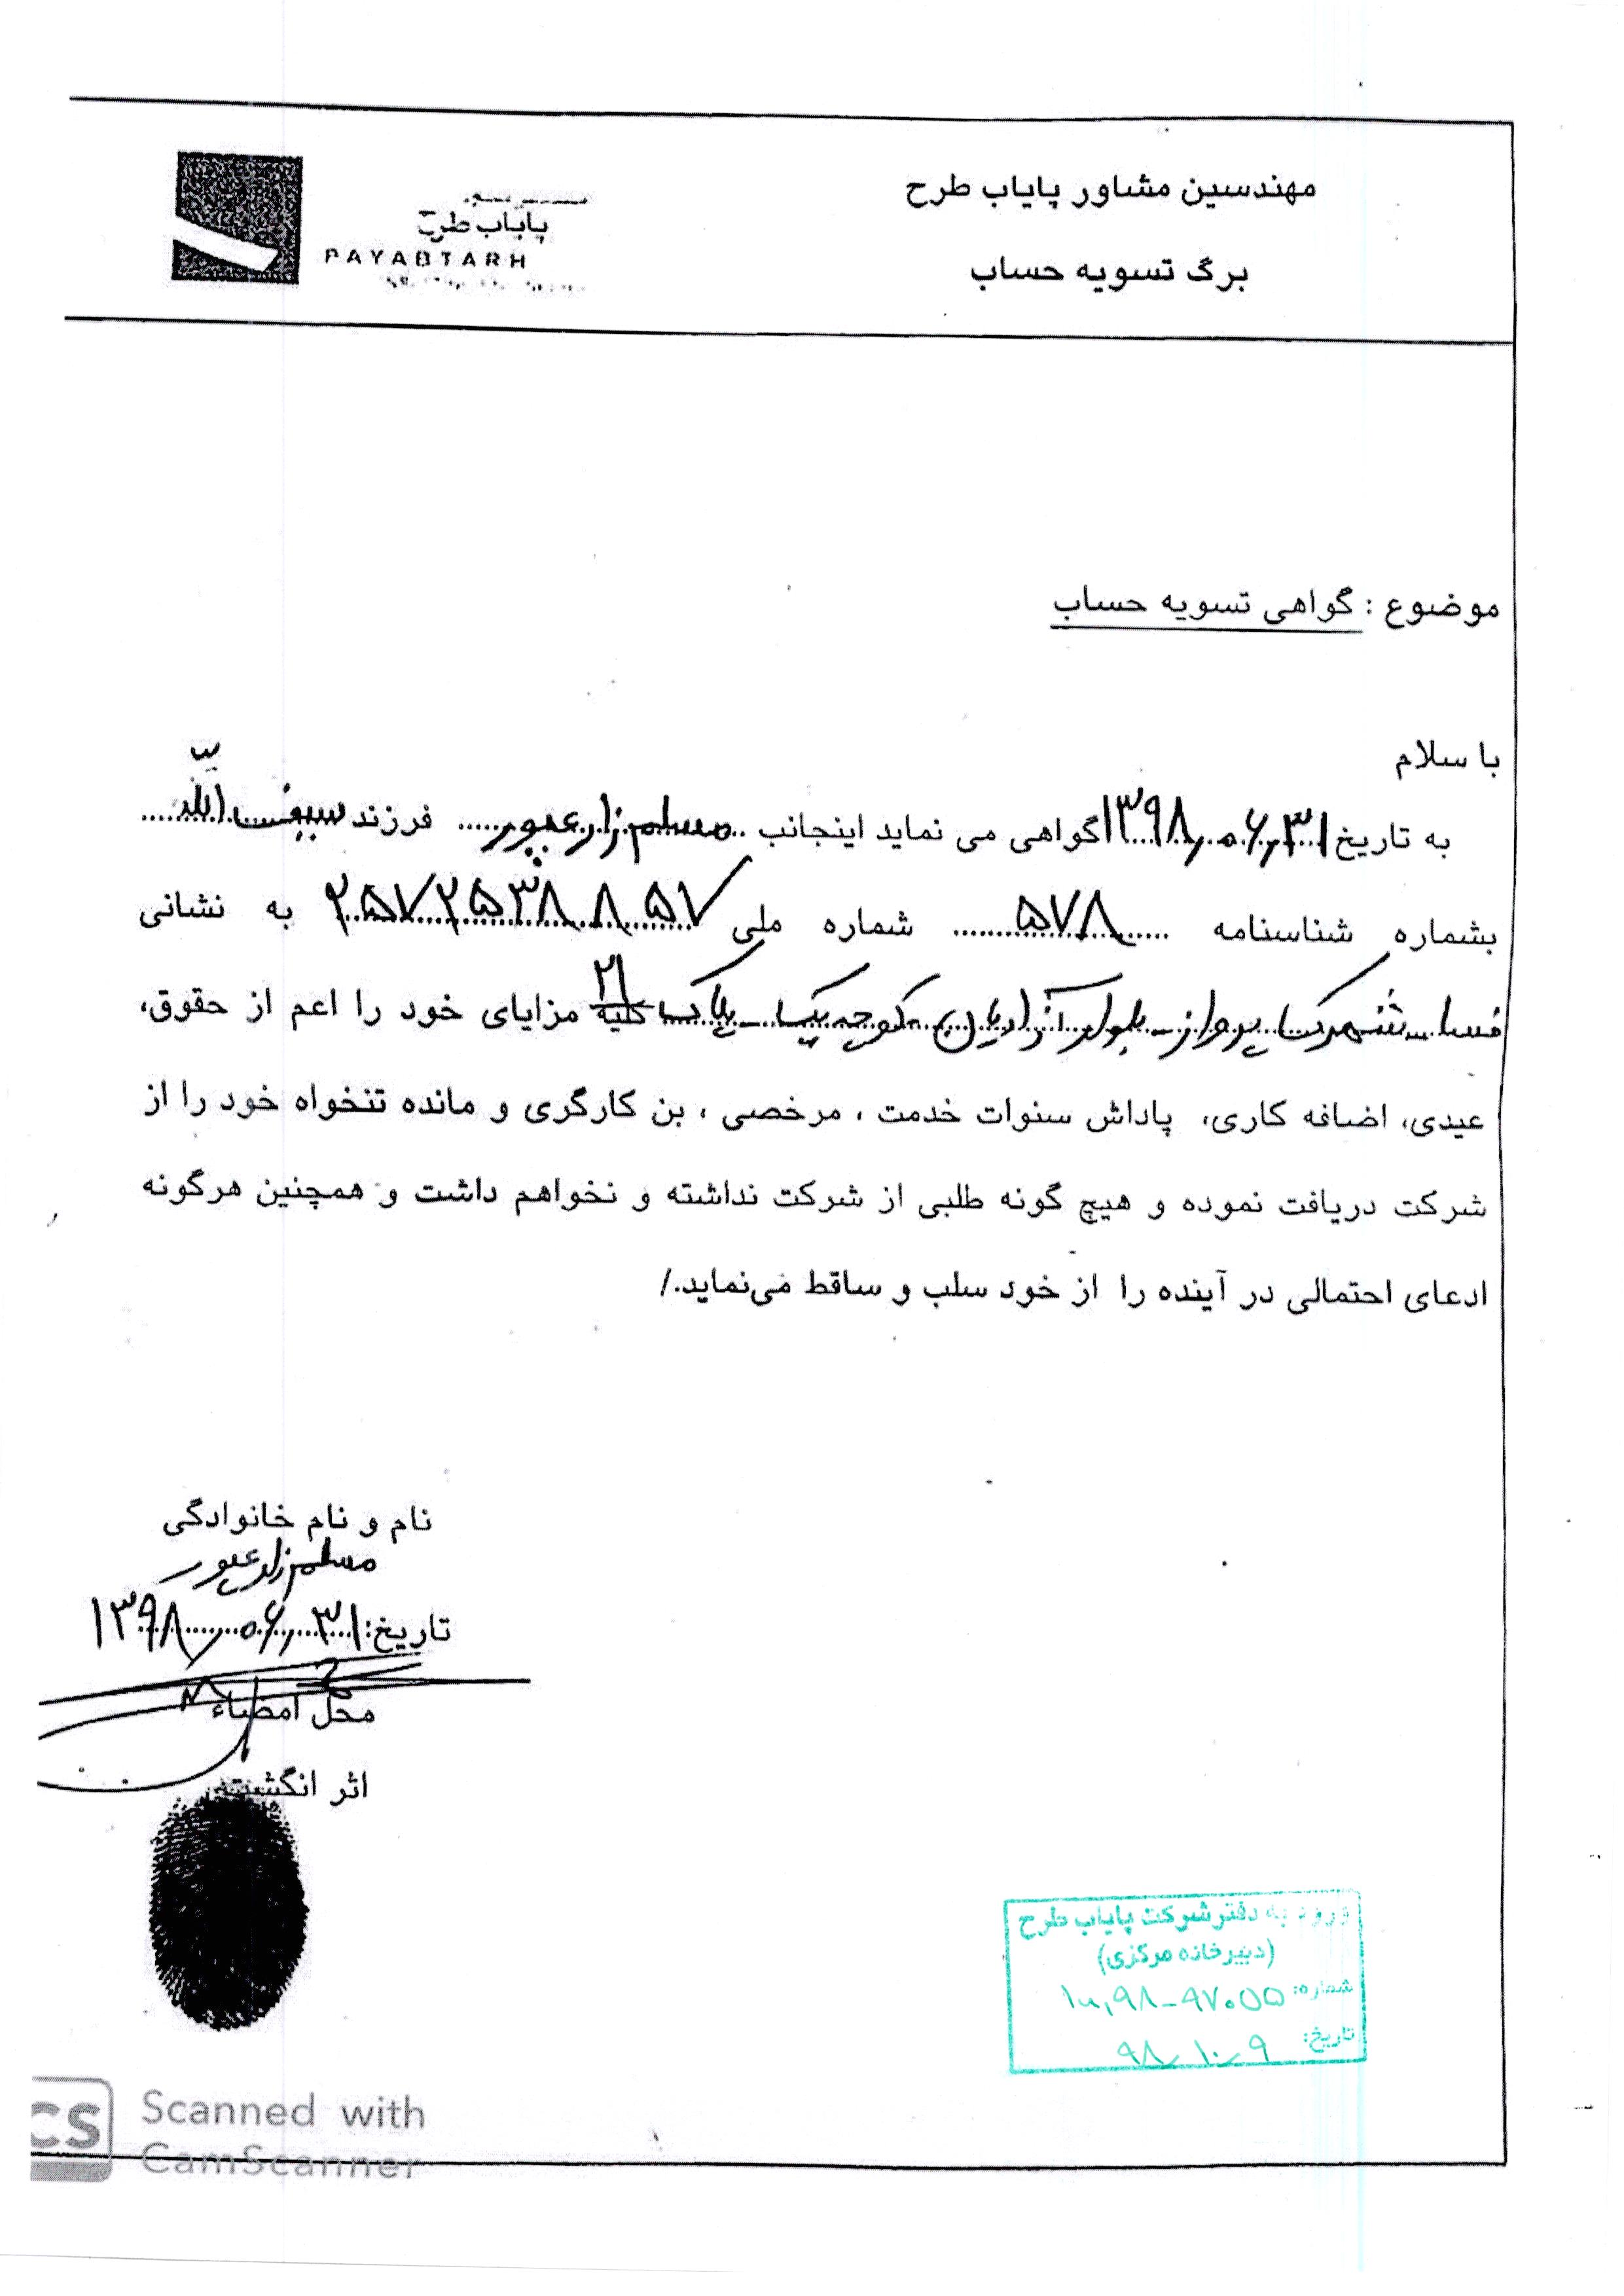 مهندسین مشاور پایاب طرح
پایاب طرح
PAYABTARH
برگ تسویه حساب
موضوع : گواهی تسویه حساب
با سلام
به تاریخ ۱۳۹۸,۰۶,۳۱ گواهی می نماید اینجانب مسلم زارعپور فرزند سیف الله
بشماره شناسنامه ۵۷۸ شماره ملی ۲۵۷۲۵۳۸۸۵۷ به نشانی
فسا - شهرک پرواز - بلوار آزادیان - کوچه یک - پلاک ۲۱ کلیه مزایای خود را اعم از حقوق،
عیدی، اضافه کاری، پاداش سنوات خدمت ، مرخصی ، بن کارگری و مانده تنخواه خود را از
شرکت دریافت نموده و هیچ گونه طلبی از شرکت نداشته و نخواهم داشت و همچنین هرگونه
ادعای احتمالی در آینده را از خود سلب و ساقط می‌نماید./
نام و نام خانوادگی
مسلم زارعپور
تاریخ: ۱۳۹۸,۰۶,۳۱
محل امضاء
اثر انگشت
ورود به دفتر شرکت پایاب طرح
(دبیرخانه مرکزی)
شماره: ۹۷۰۵۵-۹۸,
تاریخ: ۹۸,۱۰,۹
CS Scanned with
CamScanner